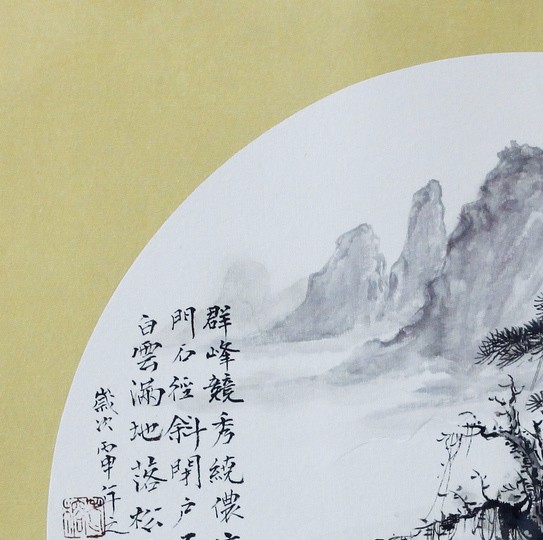 群峰競秀繞儂
門石徑斜閉户
白雲滿地落松
歲次丙申年之